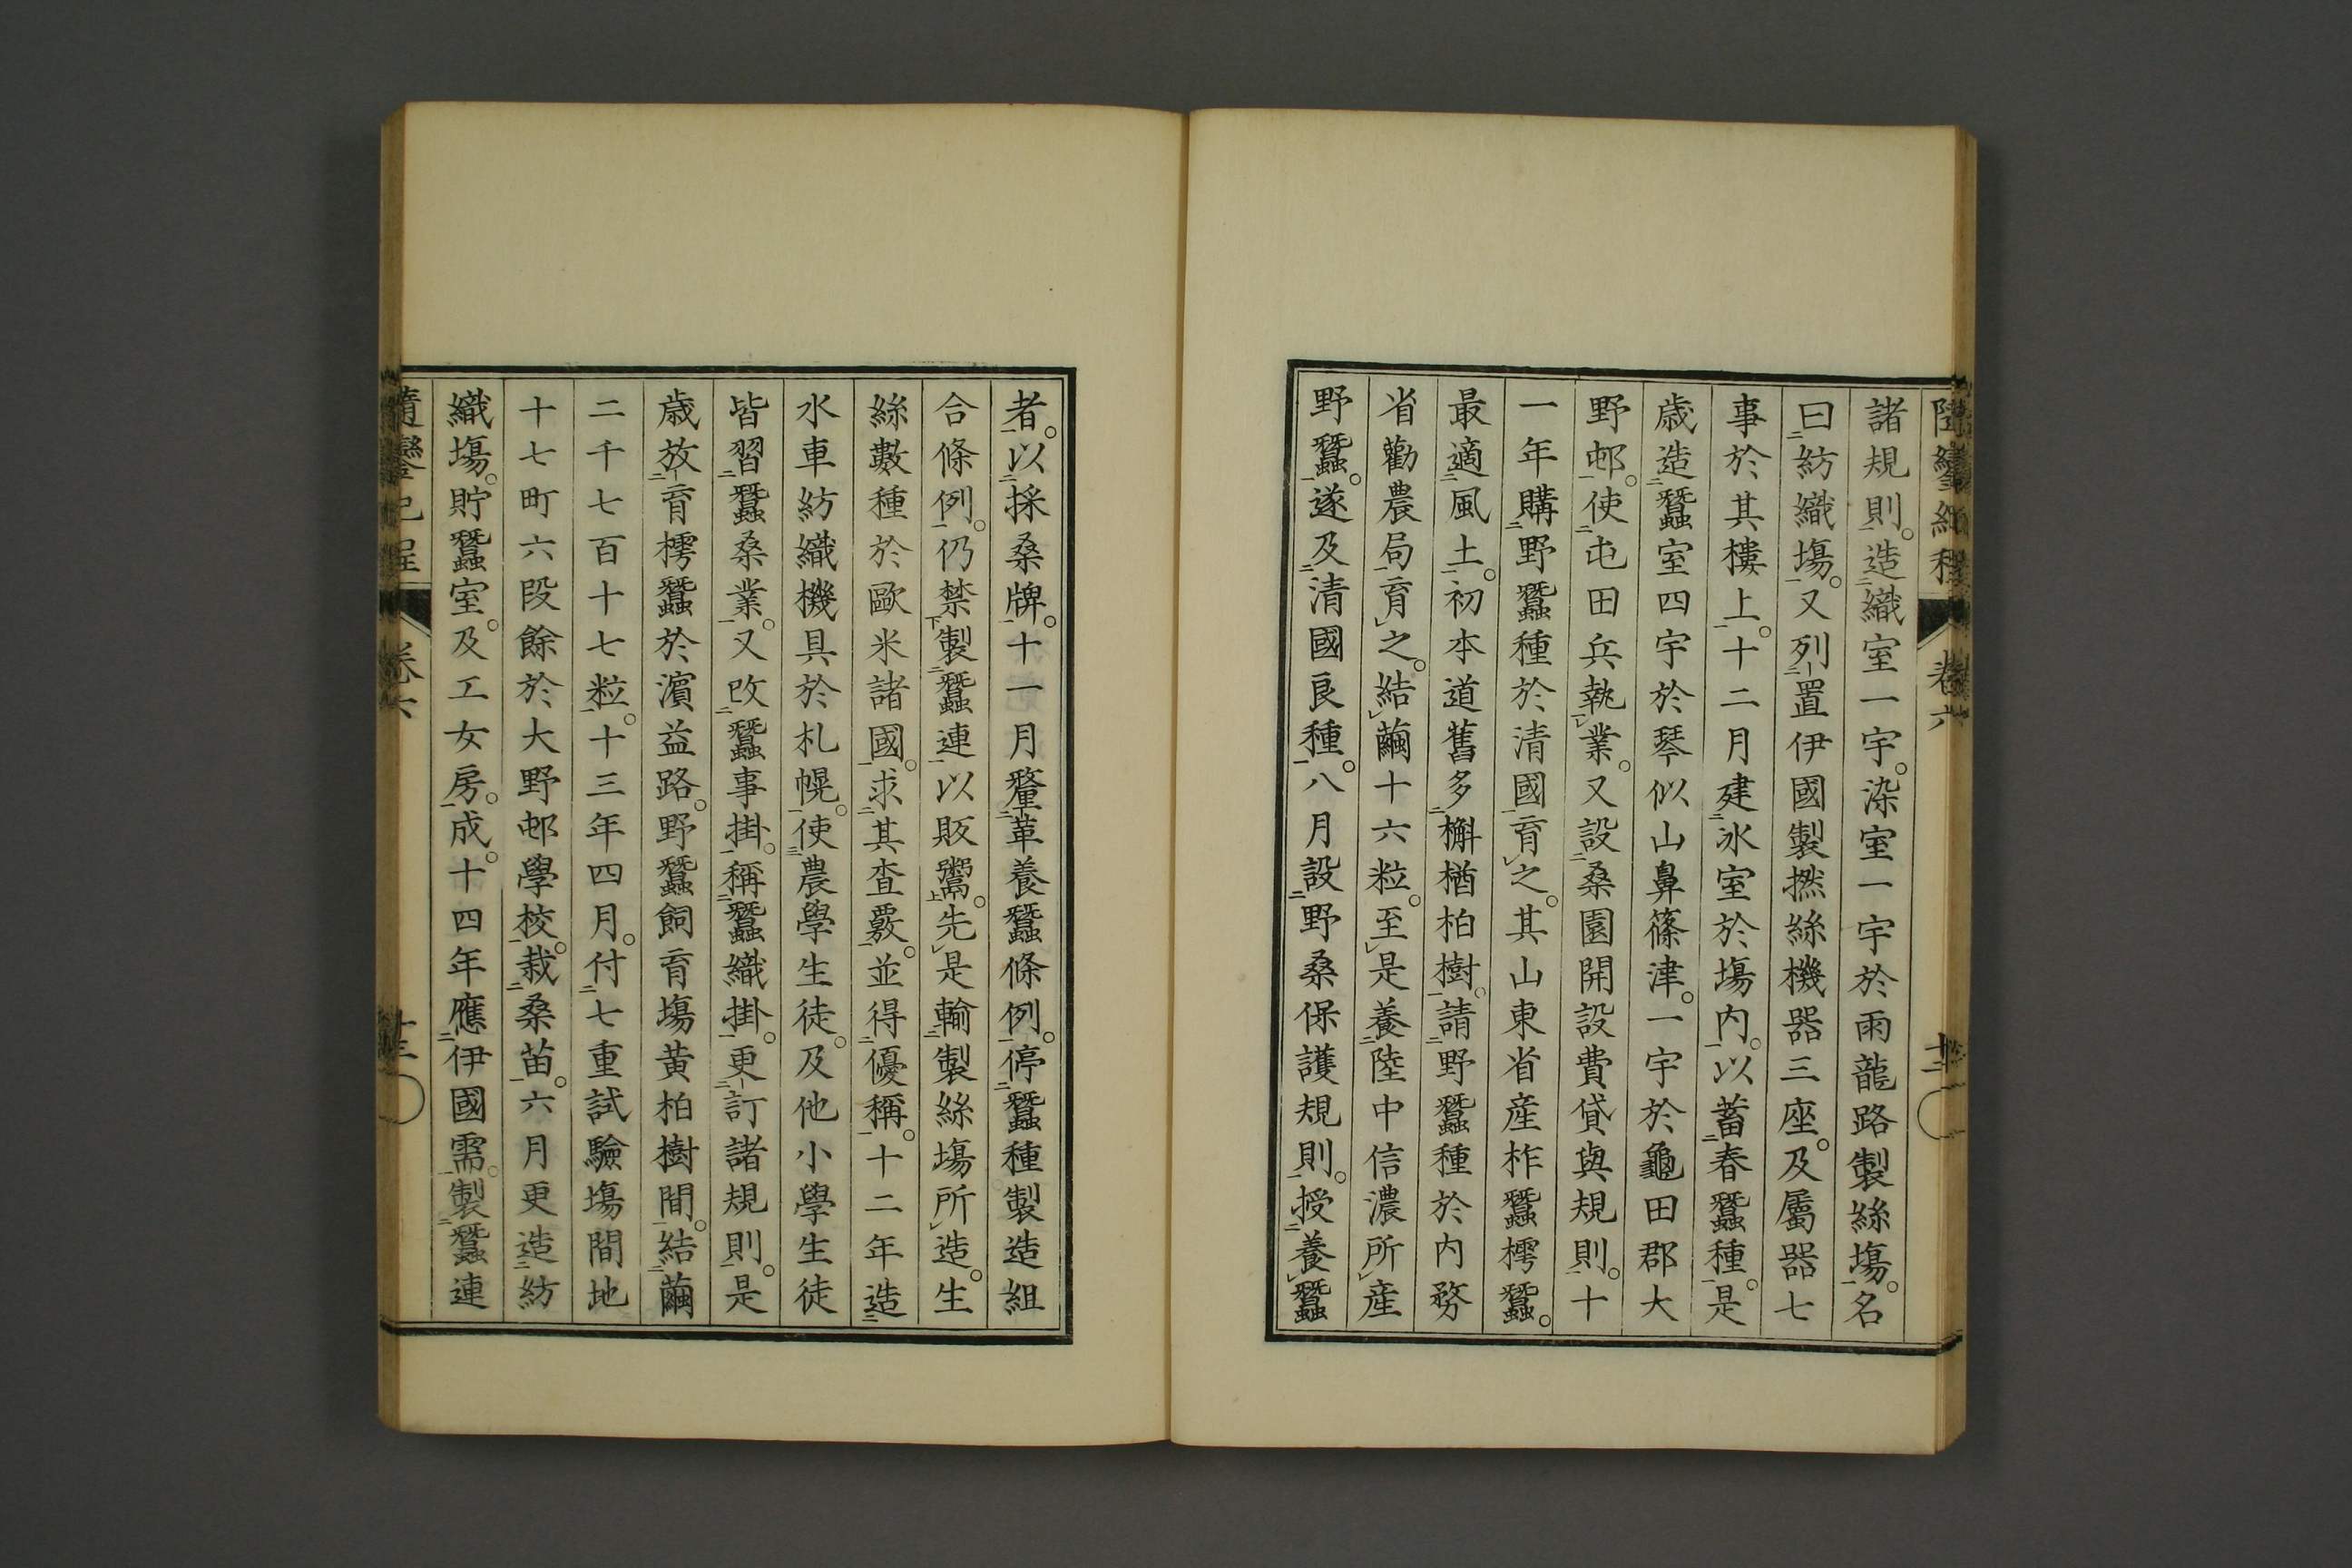 諸規則。造織室一宇。染室一宇於雨龍路製絲塲。名
曰紡織塲。又列置伊國製撚絲機器三座。及屬器七
事於其樓上。十二月建氷室於塲内。以蓄春蠶種。是
歳造蠶室四宇於琴似山鼻篠津。一宇於龜田郡大
野邨。使屯田兵執業。又設桑園開設費貸與規則。十
一年購野蠶種於清國育之。其山東省産柞蠶樗蠶。
最適風土。初本道舊多槲楢柏樹。請野蠶種於内務
省勸農局育之。結繭十六粒。至是養陸中信濃所産
野蠶。遂及清國良種。八月設野桑保護規則。授養蠶
者。以採桑牌。十一月釐革養蠶條例。停蠶種製造組
合條例。仍禁製蠶連以販鬻。先是輸製絲塲所造。生
絲數種於歐米諸國。求其査覈。並得優稱。十二年造
水車紡織機具於札幌。使農學生徒。及他小學生徒
皆習蠶桑業。又改蠶事掛。稱蠶織掛。更訂諸規則。是
歳放育樗蠶於濱益路。野蠶飼育塲黄柏樹間。結繭
二千七百十七粒。十三年四月。付七重試驗塲間地
十七町六段餘於大野邨學校。栽桑苗。六月更造紡
織塲。貯蠶室。及工女房。成。十四年應伊國需。製蠶連
卷六